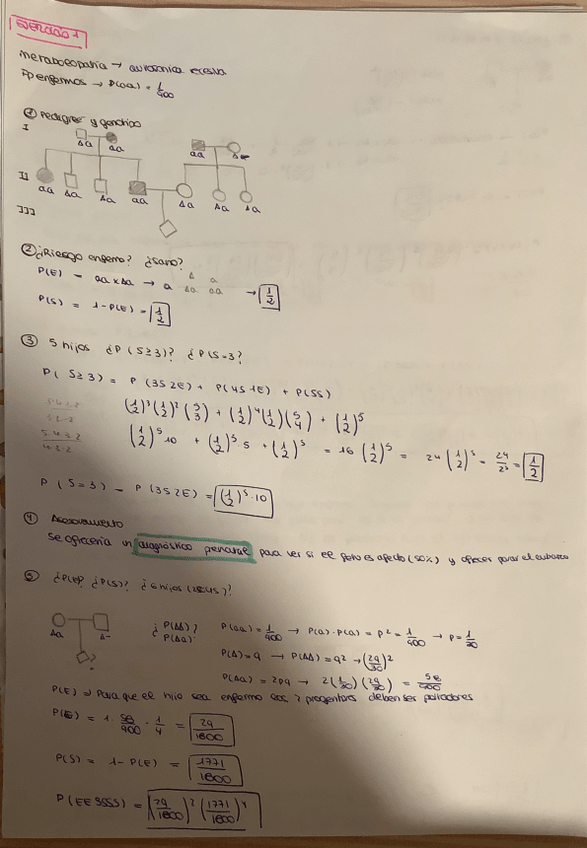 EJERCICIO 1
metabolopatía → autosómica recesiva
enfermos → P(aa) = 1/400
① Pedigree y genotipo
I
Aa aa aa A-
II
aa Aa Aa aa Aa Aa Aa
III
② ¿Riesgo enfermo? ¿sano?
P(E) - aa x Aa → a
A a
Aa aa → 1/2
P(S) = 1-P(E) = 1/2
③ 5 hijos ¿P(S≥3)? ¿P(S=3?
P(S≥3) = P(3S2E) + P(4S1E) + P(5S)
(1/2)³(1/2)²(5/3) + (1/2)⁴(1/2)(5/4) + (1/2)⁵
(1/2)⁵·10 + (1/2)⁵·5 + (1/2)⁵ = 16(1/2)⁵ = 24(1/2)⁵ = 24/2⁵ = 1/2
5·4·3·2
4·3·2
P(S=3) - P(3S2E) = (1/2)⁵·10
④ Asesoramiento
Se ofrecería un diagnóstico prenatal para ver si el feto es afecto (50%) y ofrecer parar el embarazo
⑤ ¿P(E)? ¿P(S)? ¿6 hijos (2E4S)?
Aa A-
?
¿P(AA)?
P(Aa)?
P(aa) = 1/400 → P(a)·P(a) = p² = 1/400 → p = 1/20
P(A) = q → P(AA) = q² → (29/30)²
P(Aa) = 2pq → 2(1/30)(29/30) = 58/900
P(E) → Para que el hijo sea enfermo los 2 progenitores deben ser portadores
P(E) = 1· 58/400 · 1/4 = 29/1800
P(S) = 1 - P(E) = 1771/1800
P(EESSSS) = (29/1800)² (1771/1800)⁴